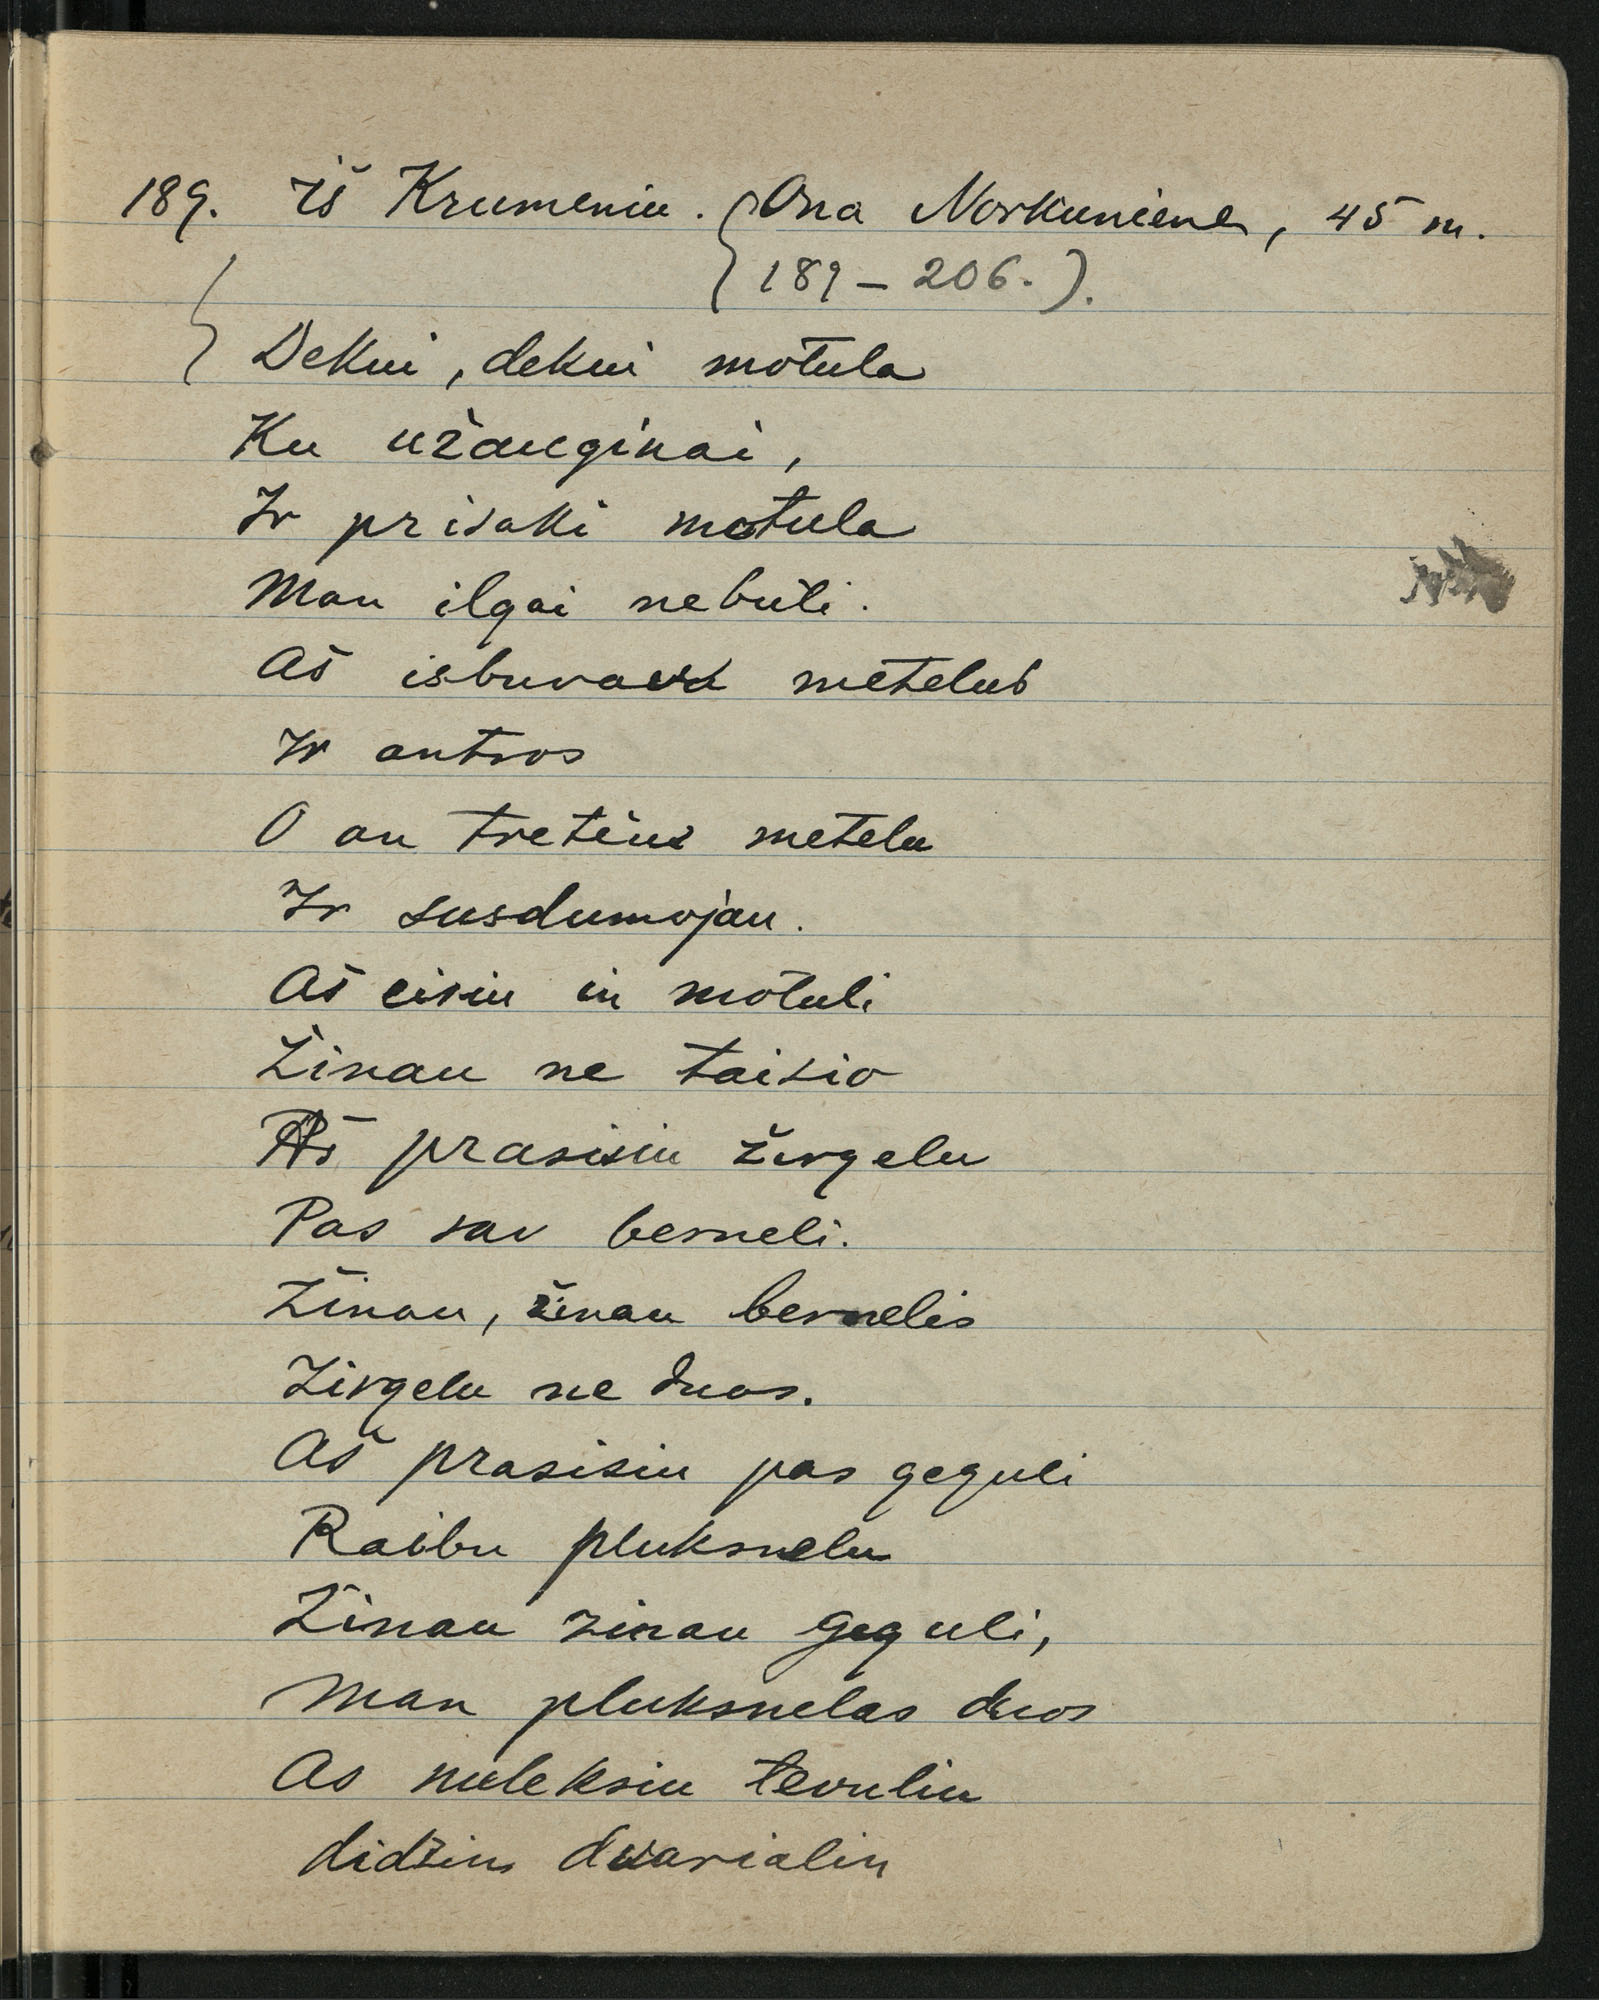 189. Iš Krumeniu. (Ona Norkuniene, 45 m.
189 – 206.).
Dekui, dekui motula
Ku užauginai,
Ir prisaki motula
Man ilgai nebuti.
Aš isbuvau metelus
Ir antros
O an tretius metelu
Ir susdumojau.
Aš eisiu in motuli
Žinau ne taisio
Aš prasisiu žirgelu
Pas sav berneli.
Žinau, žinau bernelis
Žirgelu ne duos.
Aš prasisiu pas geguli
Raibu pluksnelu
Žinau zinau geguli,
Man pluksnelas duos
As nuleksiu tevuliu
didžiu dvarialin